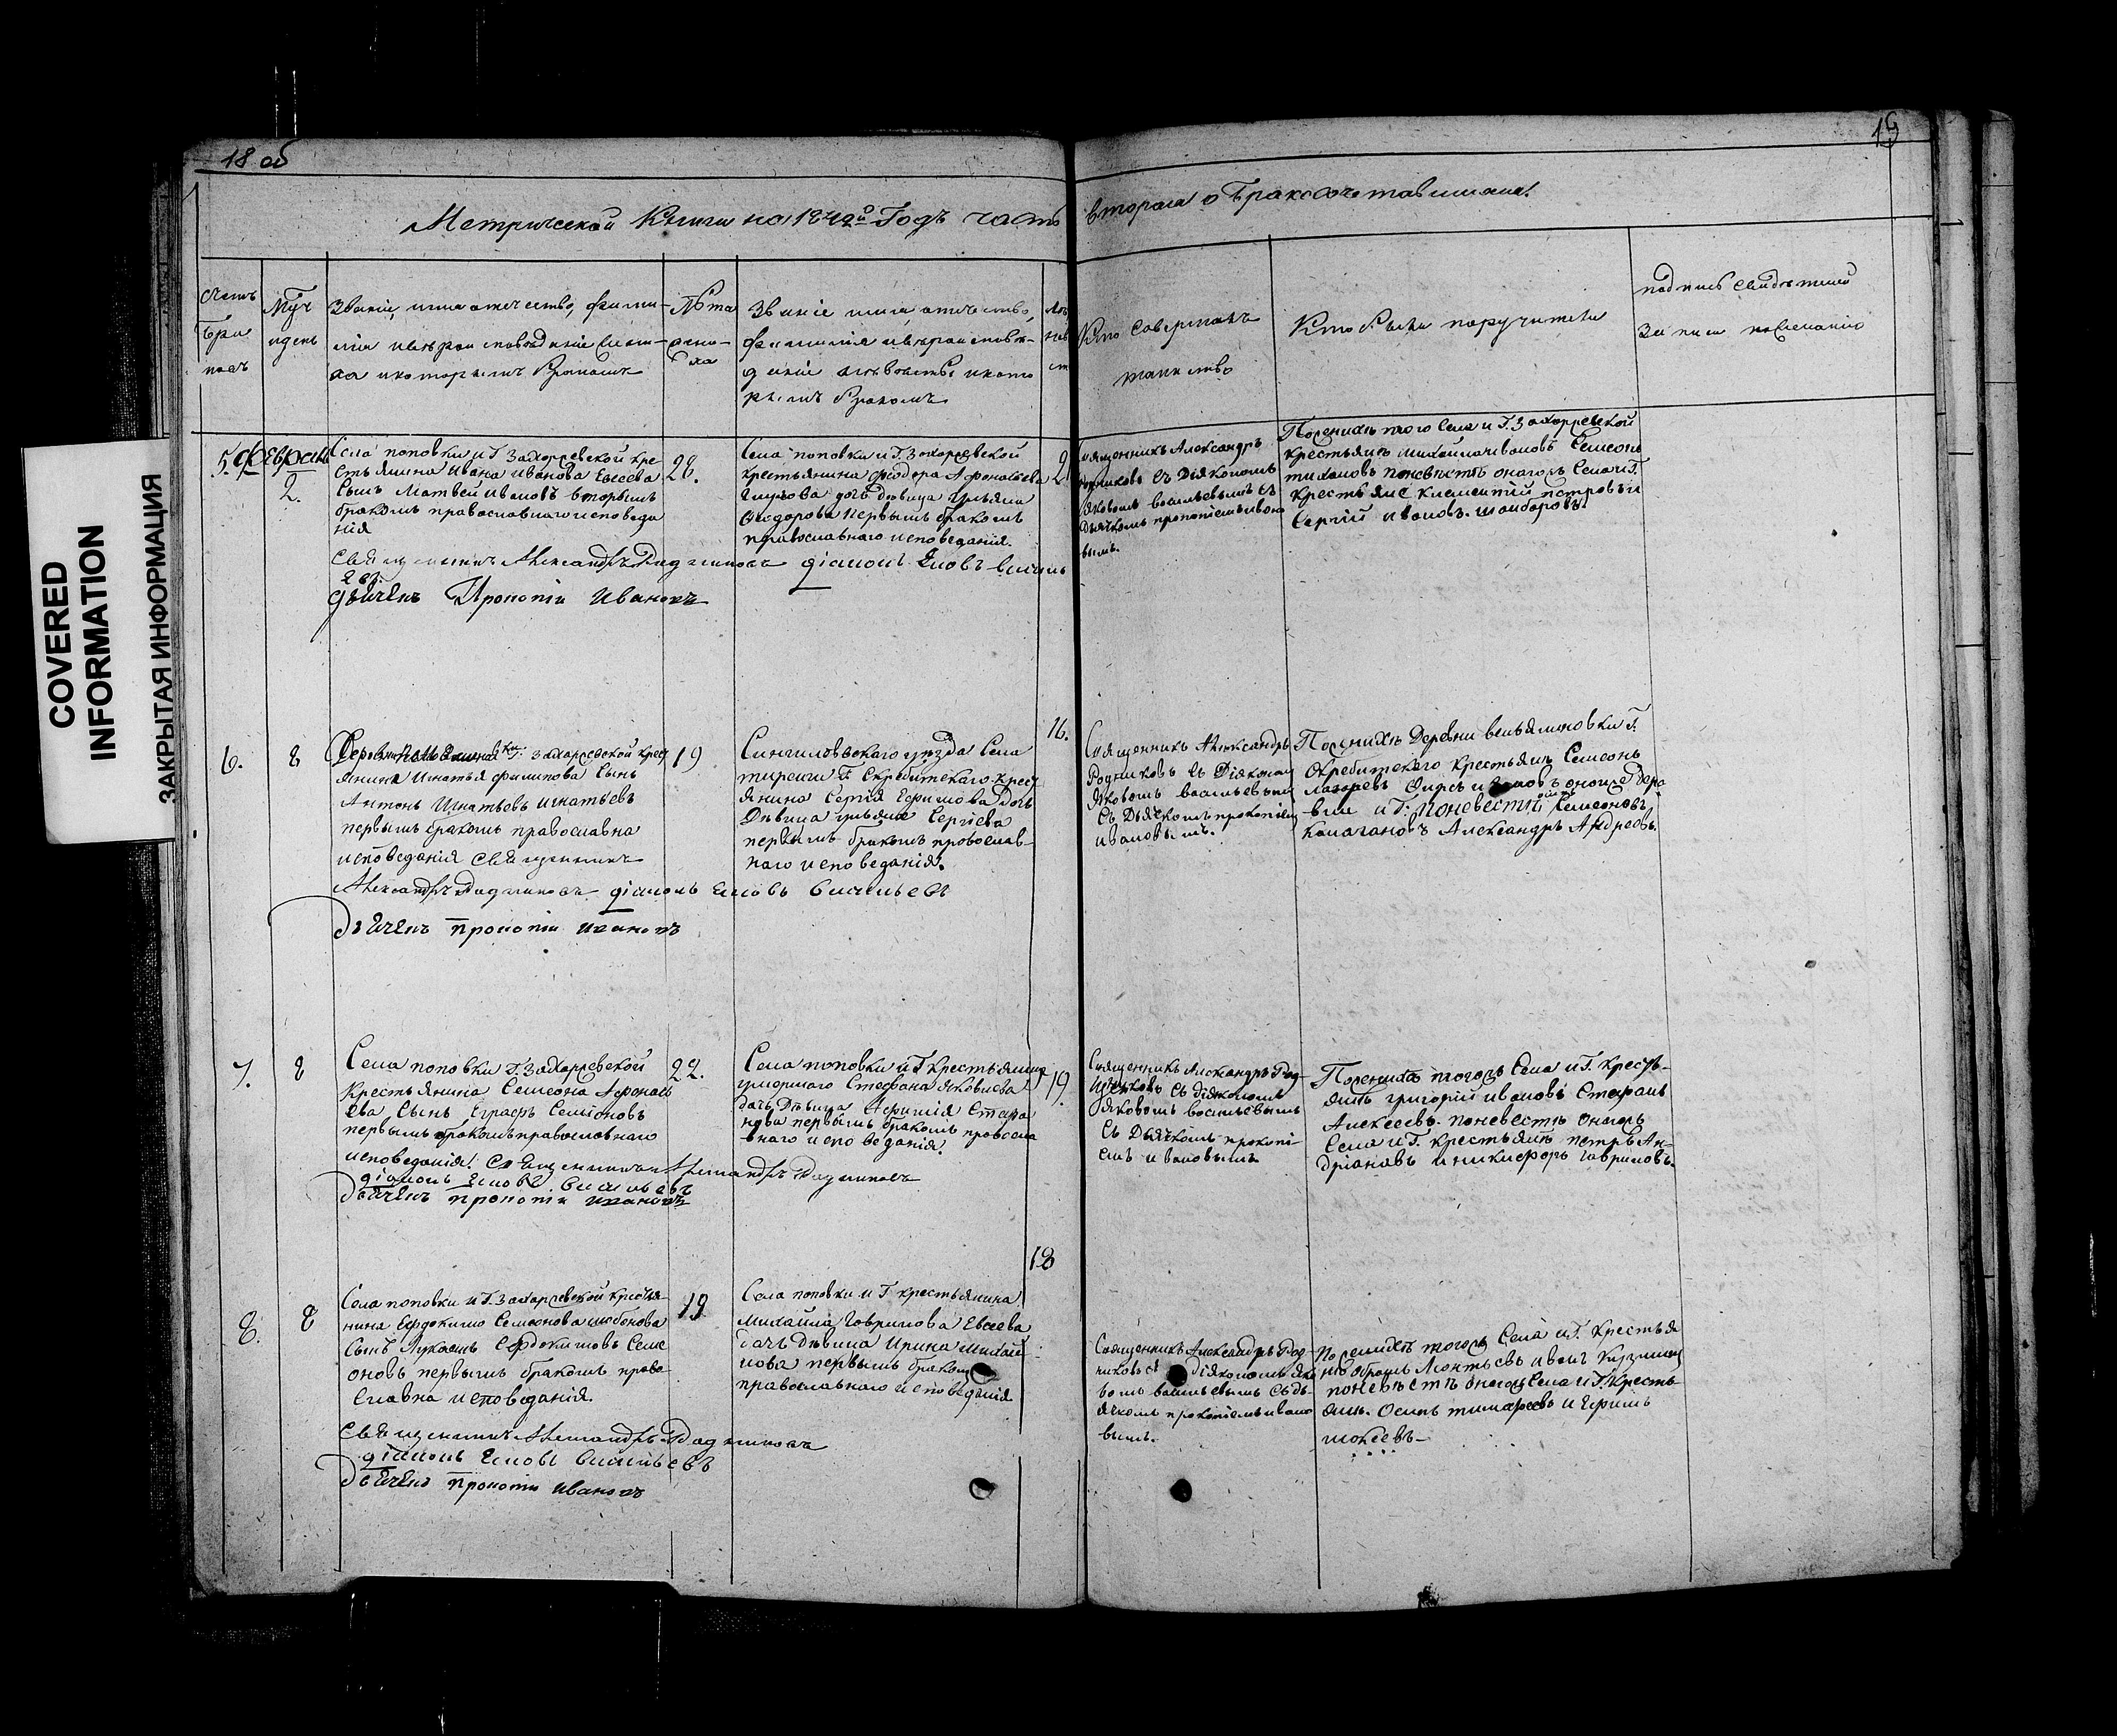 18 об
19
COVERED
INFORMATION
ЗАКРЫТАЯ ИНФОРМАЦИЯ
Метрической Книги на 1842й Годъ часть
вторая о Бракосочетавшихся
Счетъ
бра
ковъ
и день
Званіе, имя отечество, фами-
лія
ха и которымъ бракомъ
Лѣта
жени-
ха
Званіе имя, отечество,
фамилія и вѣроисповѣ-
даніе невѣсты и кото
рымъ бракомъ
Кто совершалъ
таинство
Кто были поручители
подпись свидѣтелей
записи по желанію
5.
Февраль
2.
Села поповки и Г. Захарьевской кре
стьянина Ивана Иванова Евсеева
Сынъ Матвей Ивановъ вторымъ
бракомъ православнаго исповеда
нія
28.
Села поповки и Г. Захарьевской
крестьянина Феодора Афонасьева
дочь Девица Ульяна
Феодорова первымъ бракомъ
православнаго исповеданія.
Священникъ Александръ
Родниковъ съ Діакономъ
Яковомъ васильевымъ съ
Дьячкомъ прокопіемъ ивано
вымъ.
Поженихѣ того Села и Г. Захарьевской
крестьянъ Михайла ивановъ Семеонъ
тихановъ поневѣстѣ онагожъ Села и Г.
крестьяне Климентій петровъ и
Сергій ивановъ
Священникъ Александръ Родниковъ діаконъ Яковъ василь
евъ.
дьячекъ Прокопій Ивановъ
6.
8
Захарьевской крест
янина Игнатья филипова Сынъ
Антонъ Игнатьевъ игнатьевъ
первымъ бракомъ православна
исповеданія Священникъ
Александръ Родниковъ діаконъ Яковъ васильевъ
дьячекъ прокопій ивановъ
19
Сингилѣевскаго уѣзда Села
крест
янина Сергія Ефимова Дочь
Девица ульяна Сергіева
первымъ бракомъ православ-
наго исповеданія.
16.
Священникъ Александръ
Родниковъ съ Діакономъ
Яковомъ васильевымъ
Съ Дьячкомъ прокопіемъ
ивановымъ.
Поженихѣ Деревни вельяминовки Г.
Скребитскаго крестьянъ Семеонъ
лазаревъ
вни и Г: поневестѣ Семеоновъ
Александръ Андреевъ.
7.
8
Села поповки Г. Захарьевской
Крестьянина Семеона Афонась
ева Сынъ Еграфъ Семіоновъ
первымъ бракомъ православнаго
исповеданія. Священникъ Александръ Родниковъ
діаконъ Яковъ васильевъ
дьячекъ прокопій ивановъ
22.
Села поповки и Г крестьянина
умершаго Стефана яковлева
дочь Девица Афимія Стефа
нова первымъ бракомъ правосла
внаго исповеданія.
19.
Священникъ Александръ Род-
никовъ съ діакономъ
Яковомъ васильевымъ
Съ Дьячкомъ прокопі-
емъ ивановымъ
Поженихѣ тогожъ Села и Г. кресть-
янъ григорій ивановъ Стефанъ
Алексеевъ. поневестѣ онагожъ
Села и Г. крестьянъ петръ Ан-
дріановъ и никифоръ гавриловъ.
8.
8
Села поповки и Г. Захарьевской крестья-
нина Евдокима Семеонова
Сынъ Лукаянъ Евдокимовъ Семе
оновъ первымъ бракомъ право
славна исповеданія.
Священникъ Александръ Родниковъ
діаконъ Яковъ васильевъ
дьячекъ прокопій ивановъ
19
Села поповки и Г крестьянина
Михайла Гаврилова Евсеева
дочь Девица Ирина Михай
лова первымъ бракомъ
православнаго исповеданія
18
Священникъ Александръ Род-
никовъ съ діакономъ Яко
вомъ васильевымъ съ дь-
ячкомъ прокопіемъ ивано
вымъ.
Поженихѣ тогожъ Села и Г. крестья
поневѣстѣ онагожъ Села и Г. кресть-
янъ. Осипъ тимофеевъ и Ефимъ
мокеевъ